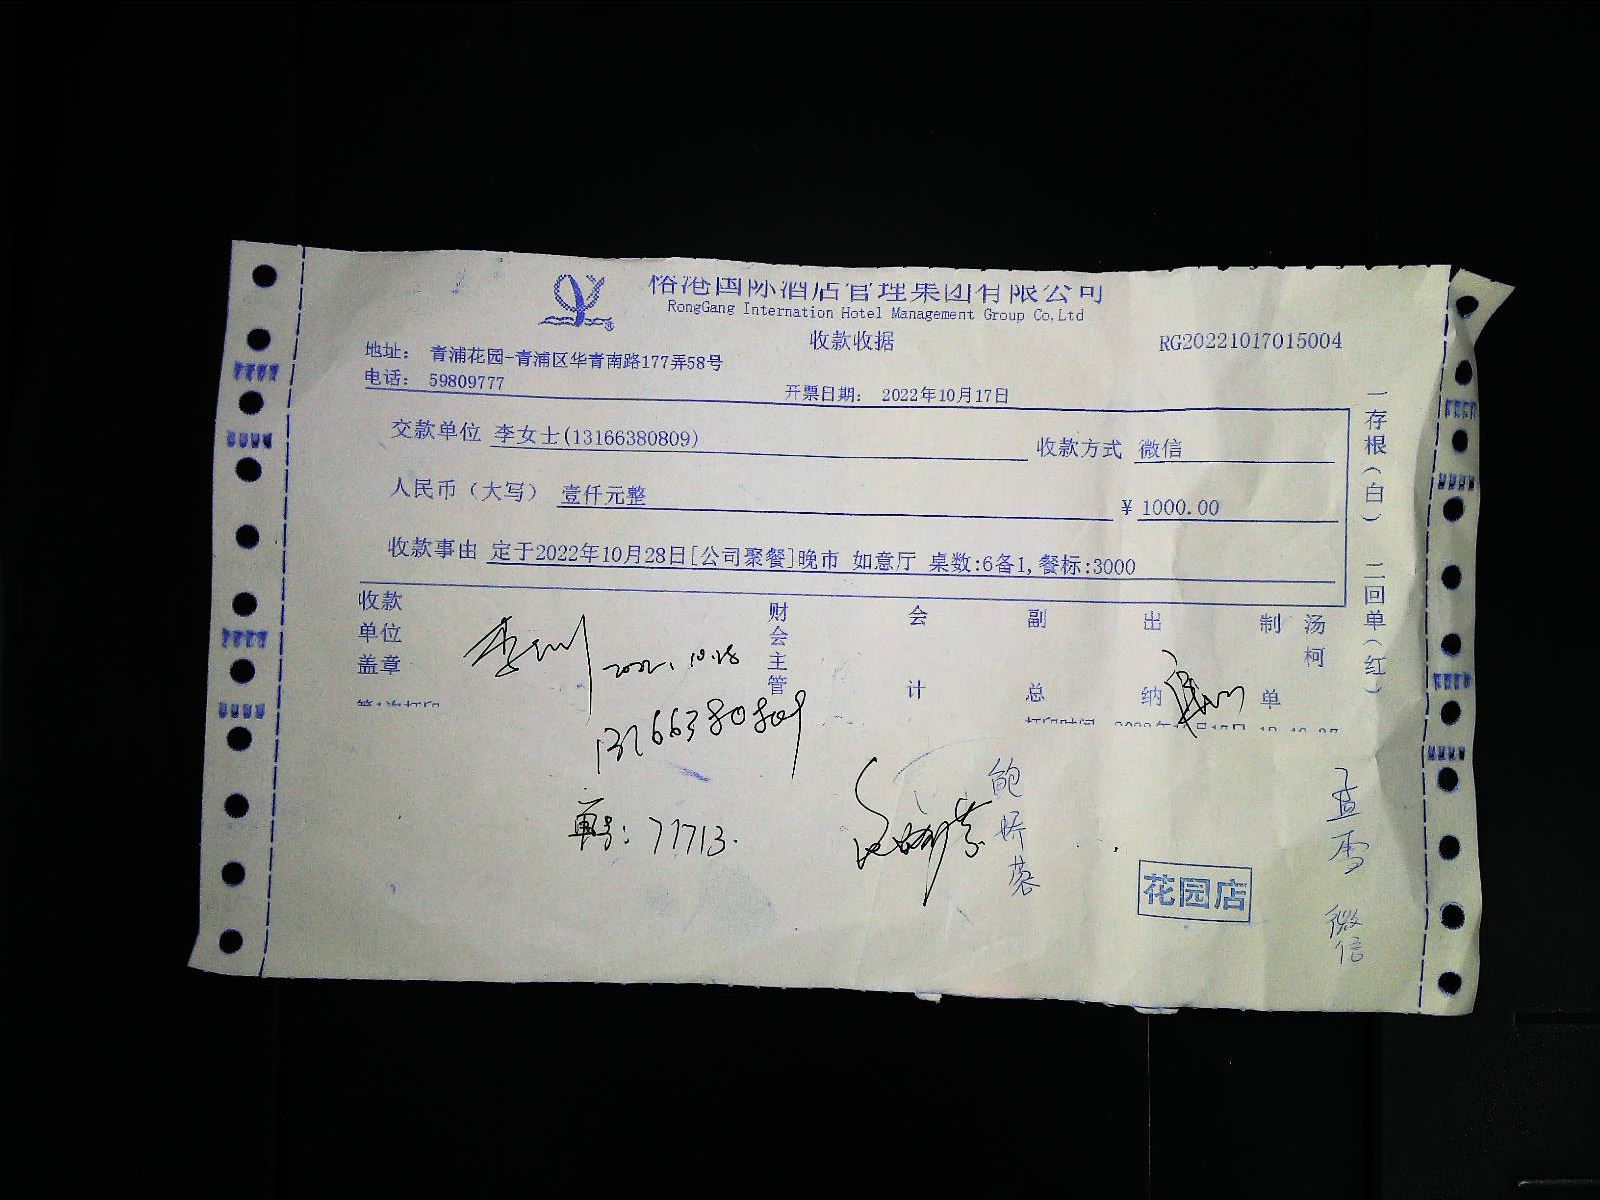 港国际酒店管理集团有限公司
RongGang Internation Hotel Management Group Co,Ltd
收款收据
RG20221017015004
地址： 青浦花园-青浦区华青南路177弄58号
电话： 59809777
开票日期： 2022年10月17日
交款单位 李女士(13166380809)
收款方式 微信
人民币（大写） 壹仟元整
¥ 1000.00
收款事由 定于2022年10月28日[公司聚餐]晚市 如意厅 桌数:6备1,餐标:3000
一存根（白） 二回单（红）
收款单位盖章
财会主管
会计
副总
出纳
制单
汤柯
2022.10.28
13166380809
单号: 77713.
鲍娇蓉
孟雪
微信
花园店